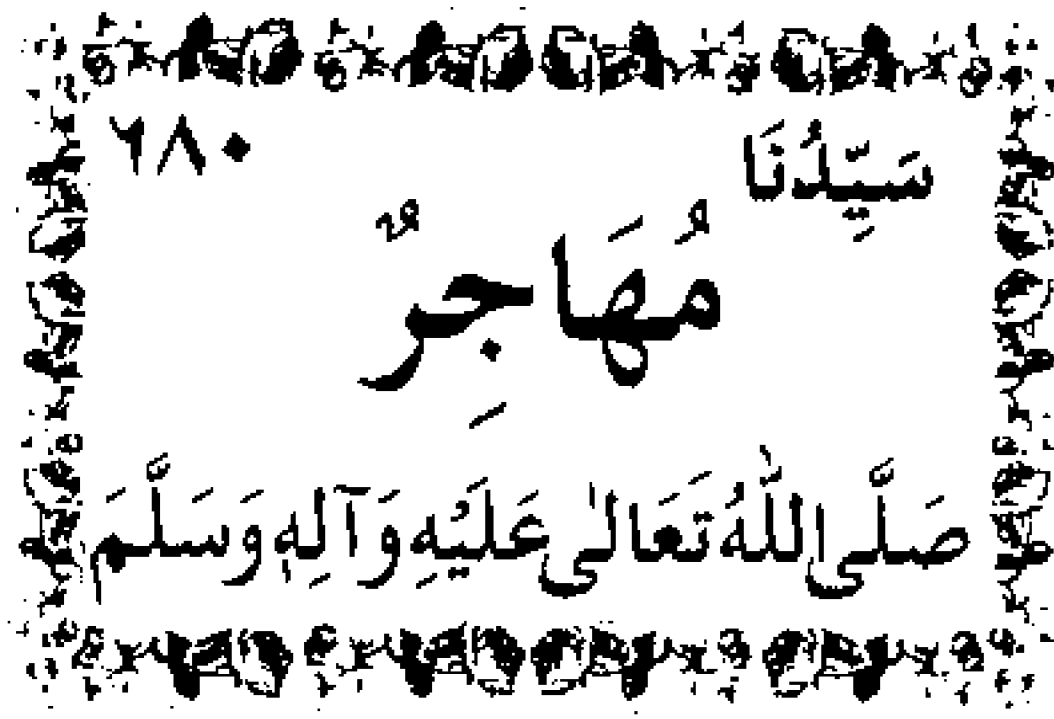 سَيِّدُنَا ٦٨٠
مُهَاجِرٌ
صَلَّى اللّٰهُ تَعَالىٰ عَلَيْهِ وَآلِهٖ وَسَلَّمَ